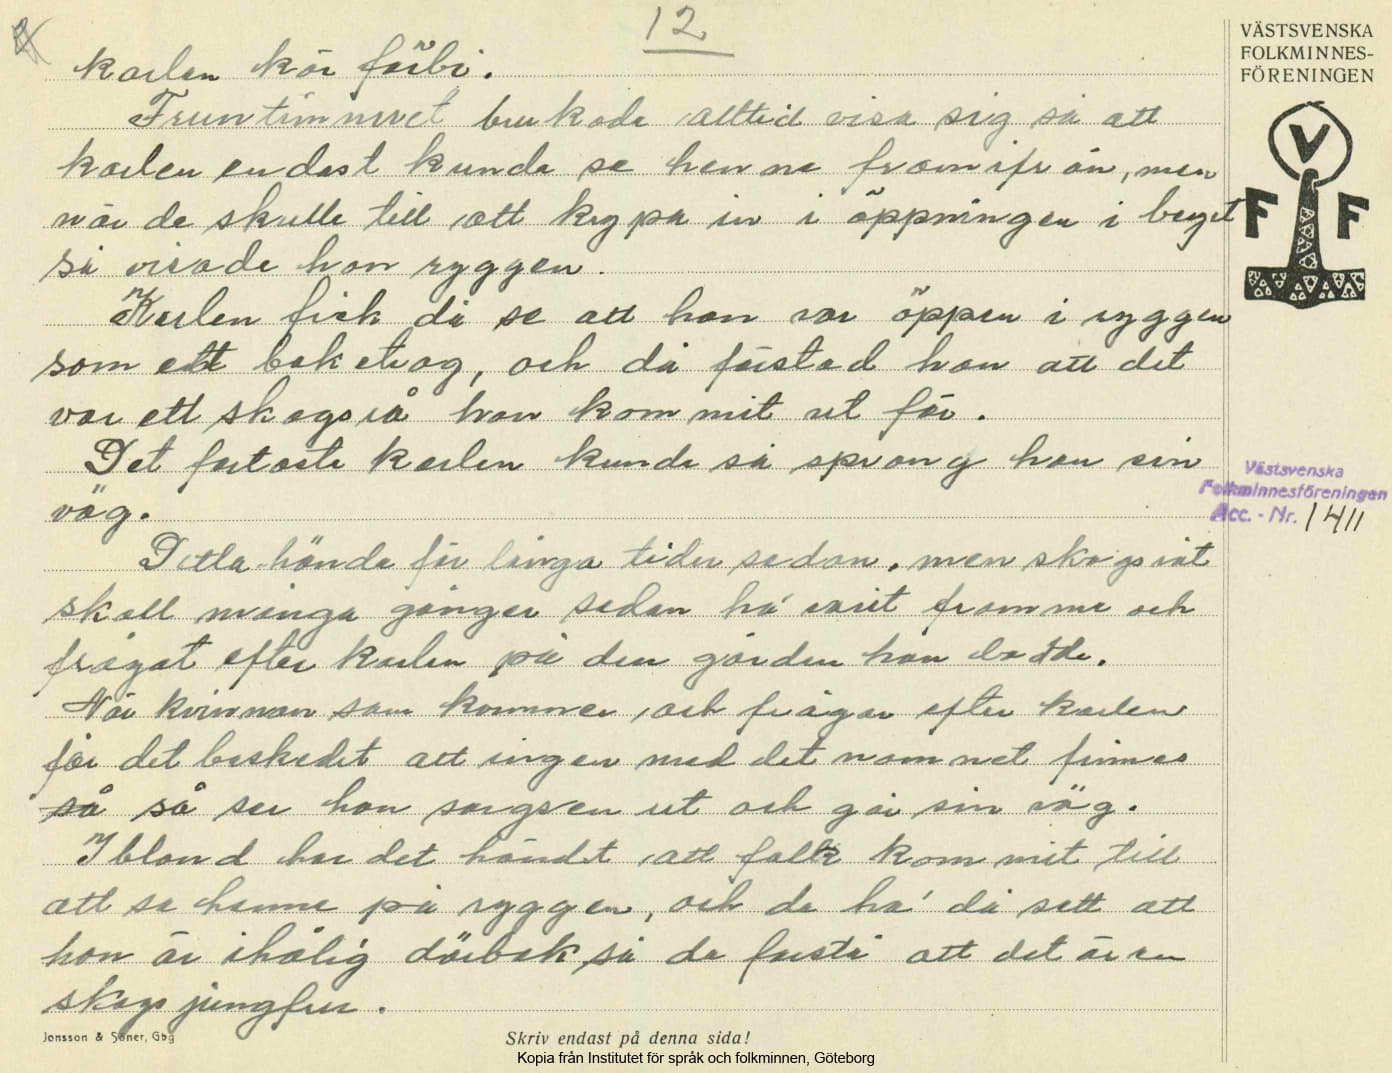 12
VÄSTSVENSKA
FOLKMINNES-
FÖRENINGEN
V
F F
karlen kör förbi.
Fruntimmret brukade alltid visa sig så att
karlen endast kunde se henne framifrån, men
när de skulle till att krypa in i öppningen i berget
så visade hon ryggen.
Karlen fick då se att hon var öppen i ryggen
som ett baketrog, och då förstod han att det
var ett skogsrå han kommit ut för.
Det fortaste karlen kunde så sprang han sin
väg.
Detta hände för långa tider sedan, men skogsråt
skall många gånger sedan ha' varit framme och
frågat efter karlen på den gården han bodde.
När kvinnan som kommer och frågar efter karlen
får det beskedet att ingen med det namnet finnes
så så ser hon sorgsen ut och går sin väg.
Ibland har det händt att folk kommit till
att se henne på ryggen, och de ha' då sett att
hon är ihålig därbak, så de förstå att det är en
skogsjungfru.
Västsvenska
Folkminnesföreningen
Acc. - Nr. 1411
Jonsson & Söner, Gbg
Skriv endast på denna sida!
Kopia från Institutet för språk och folkminnen, Göteborg